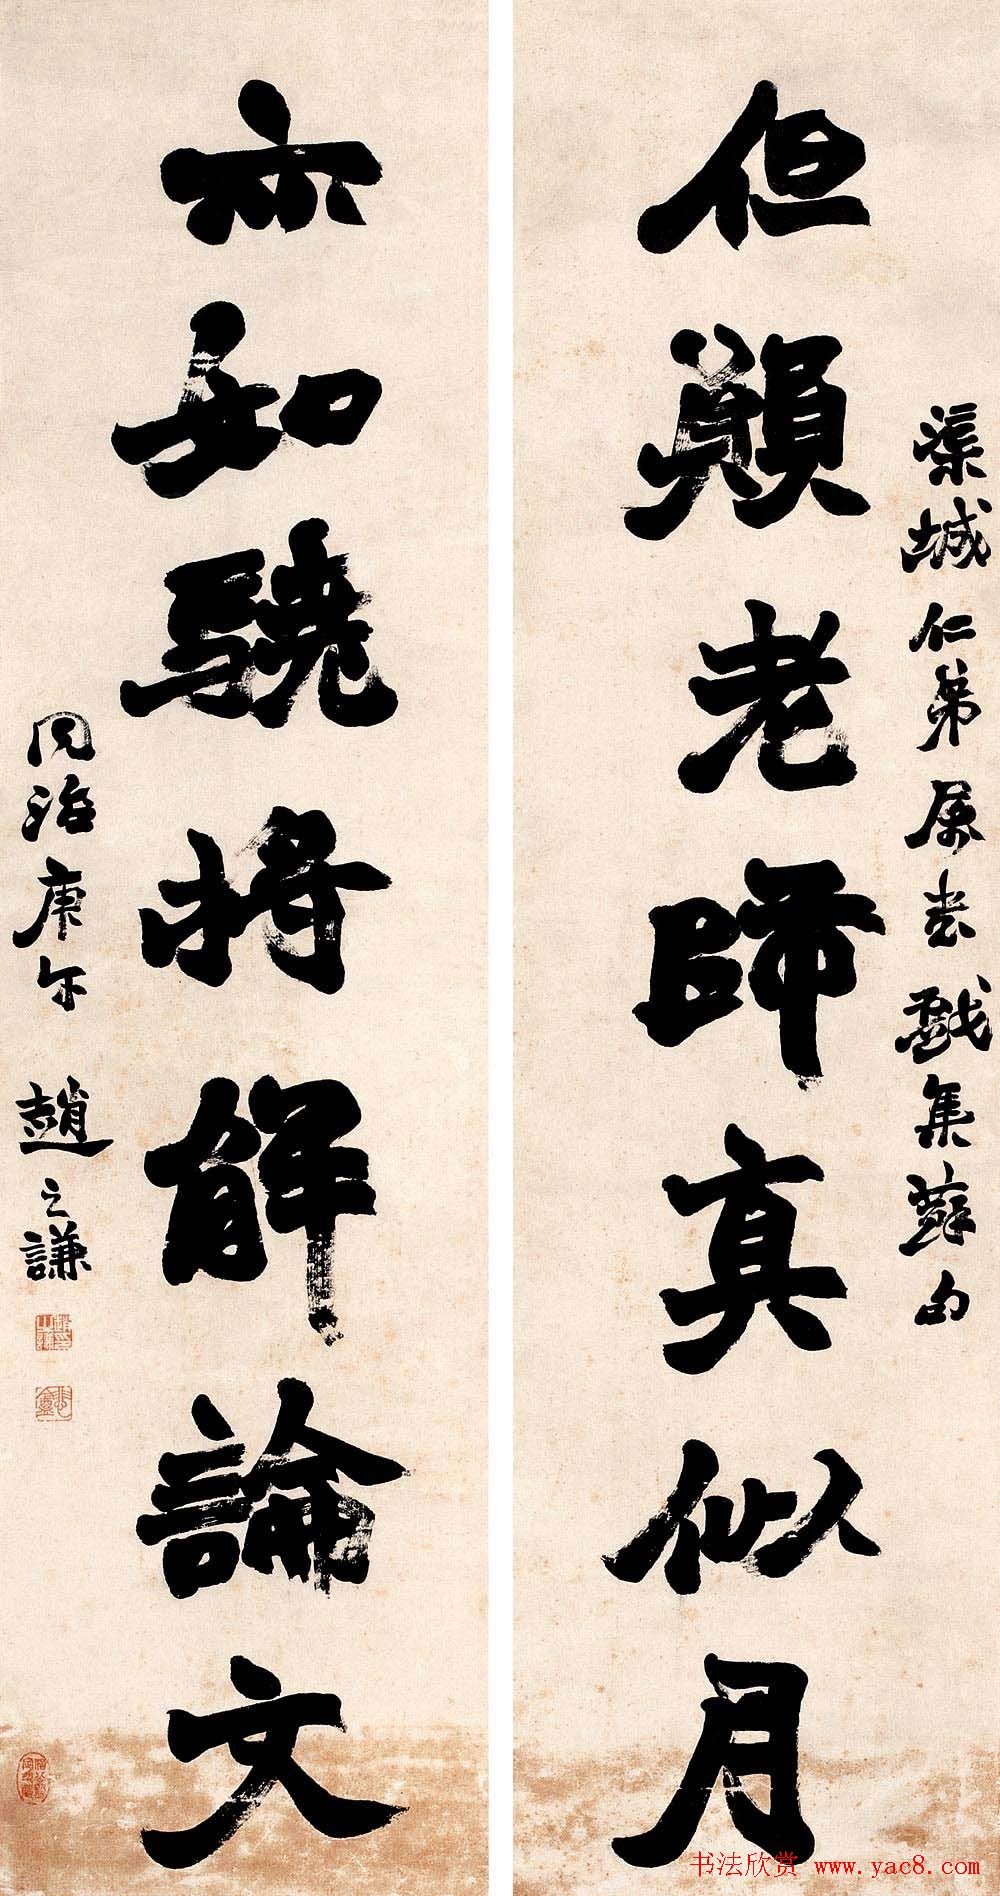 渠城仁弟属书戏集苏句
但願老師真似月
亦知驍將解論文
同治庚午 趙之謙
书法欣赏 www.yac8.com